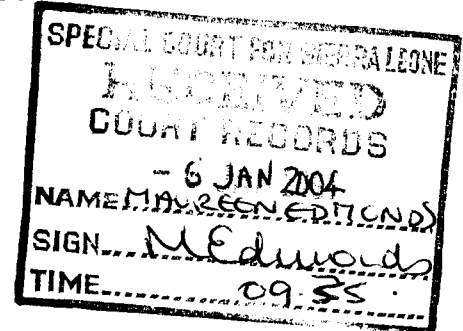 SPECIAL COURT FOR SIERRA LEONE
RECEIVED
COURT RECORDS
- 6 JAN 2004
NAME MAUREEN EDMONDS
SIGN MEdmonds
TIME 09.35.